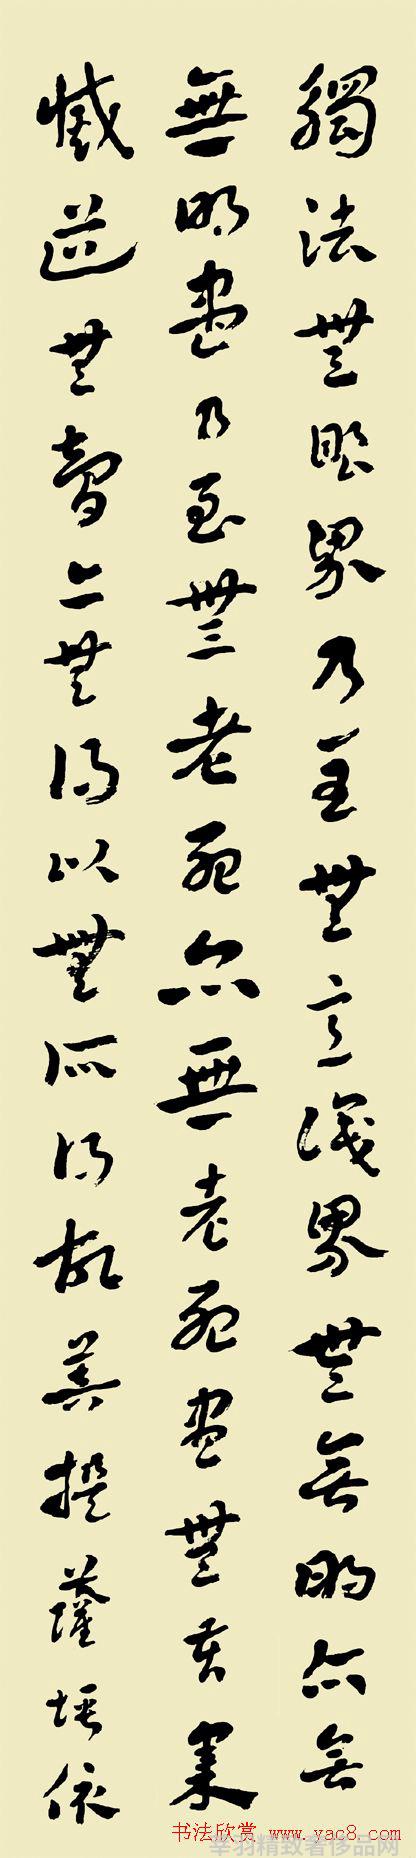 觸法無眼界乃至無意識界無無明亦無
無明盡乃至無老死亦無老死盡無苦集
滅道無智亦無得以無所得故菩提薩埵依
书法欣赏 www.yac8.com
羽精致奢侈品网